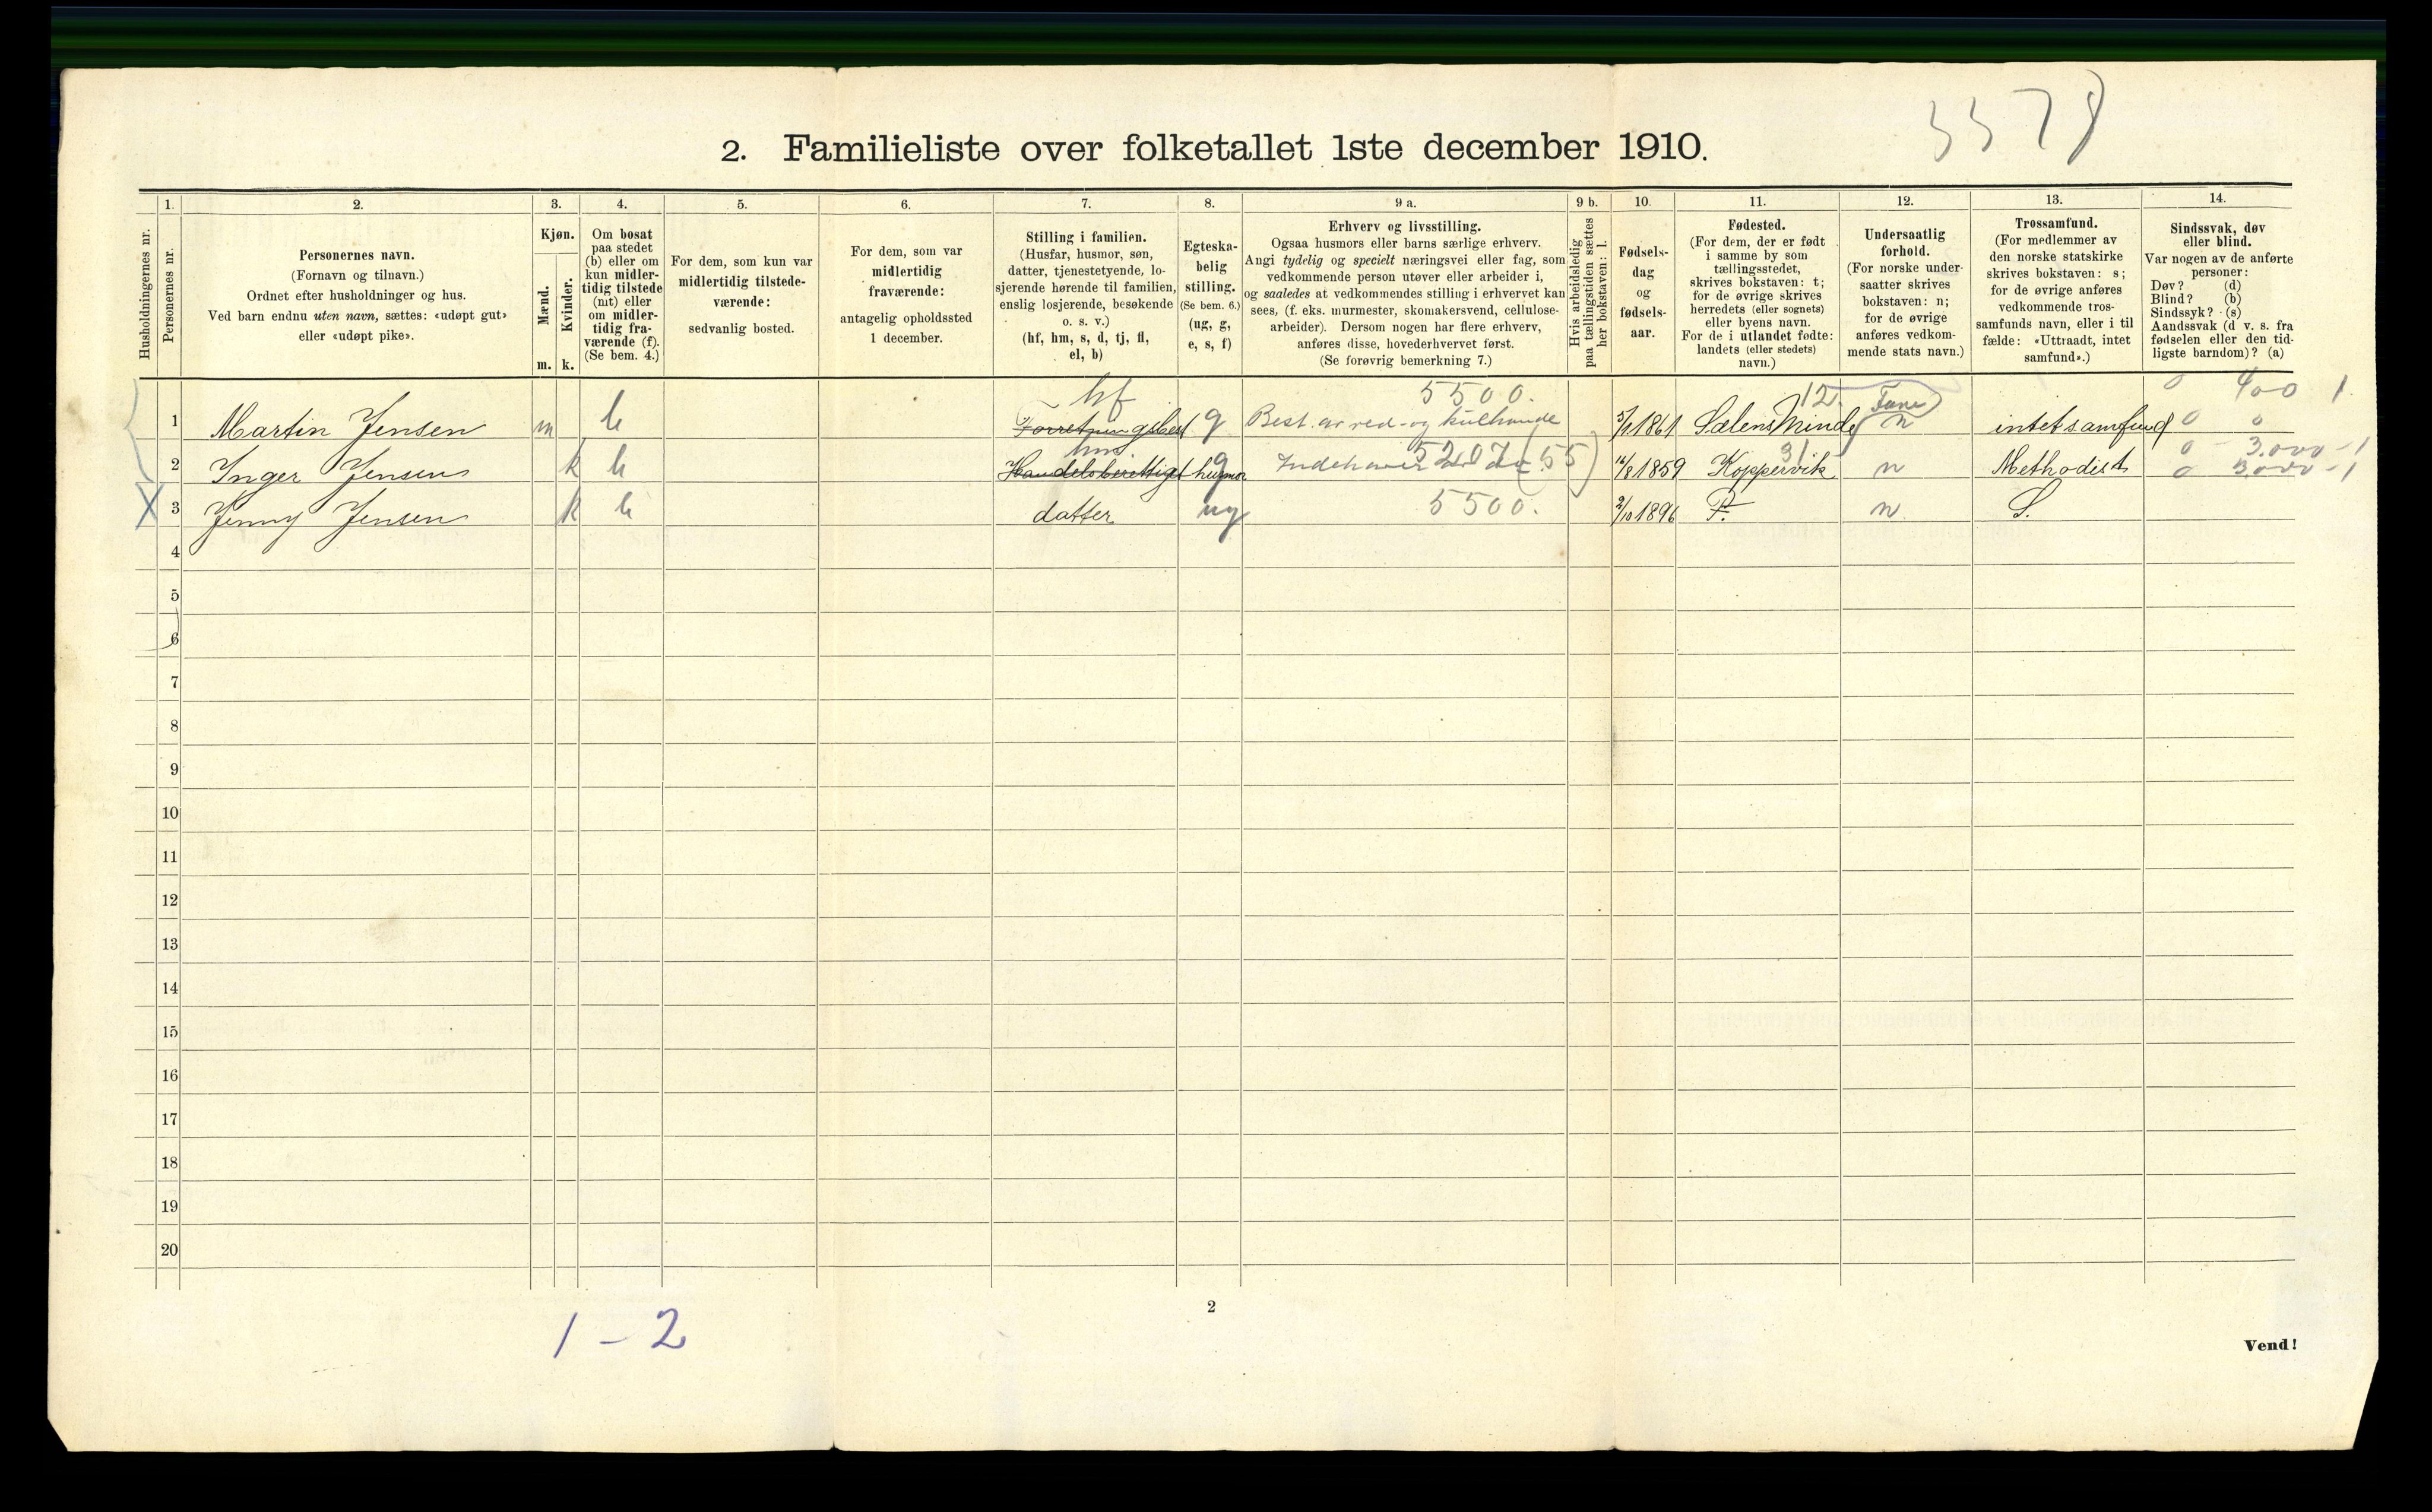 3378
2. Familieliste over folketallet 1ste december 1910.
1. 2. 3. 4. 5. 6. 7. 8. 9 a. 9 b. 10. 11. 12. 13. 14.
Husholdningernes nr.
Personernes nr.
Personernes navn.
(Fornavn og tilnavn.)
Ordnet efter husholdninger og hus.
Ved barn endnu uten navn, sættes: «udøpt gut»
eller «udøpt pike».
Kjøn.
Mænd.
Kvinder.
m. k.
Om bosat
paa stedet
(b) eller om
kun midler-
tidig tilstede
(mt) eller
om midler-
tidig fra-
værende (f).
(Se bem. 4.)
For dem, som kun var
midlertidig tilstede-
værende:
sedvanlig bosted.
For dem, som var
midlertidig
fraværende:
antagelig opholdssted
1 december.
Stilling i familien.
(Husfar, husmor, søn,
datter, tjenestetyende, lo-
sjerende hørende til familien,
enslig losjerende, besøkende
o. s. v.)
(hf, hm, s, d, tj, fl,
el, b)
Egteska-
belig
stilling.
(Se bem. 6.)
(ug, g,
e, s, f)
Erhverv og livsstilling.
Ogsaa husmors eller barns særlige erhverv.
Angi tydelig og specielt næringsvei eller fag, som
vedkommende person utøver eller arbeider i,
og saaledes at vedkommendes stilling i erhvervet kan
sees, (f. eks. murmester, skomakersvend, cellulose-
arbeider). Dersom nogen har flere erhverv,
anføres disse, hovederhvervet først.
(Se forøvrig bemerkning 7.)
Hvis arbeidsledig
paa tællingstiden sættes
her bokstaven: l.
Fødsels-
dag
og
fødsels-
aar.
Fødested.
(For dem, der er født
i samme by som
tællingsstedet,
skrives bokstaven: t;
for de øvrige skrives
herredets (eller sognets)
eller byens navn.
For de i utlandet fødte:
landets (eller stedets)
navn.)
Undersaatlig
forhold.
(For norske under-
saatter skrives
bokstaven: n;
for de øvrige
anføres vedkom-
mende stats navn.)
Trossamfund.
(For medlemmer av
den norske statskirke
skrives bokstaven: s;
for de øvrige anføres
vedkommende tros-
samfunds navn, eller i til
fælde: «Uttraadt, intet
samfund».)
Sindssvak, døv
eller blind.
Var nogen av de anførte
personer:
Døv? (d)
Blind? (b)
Sindssyk? (s)
Aandssvak (d v. s. fra
fødselen eller den tid-
ligste barndom)? (a)
hf 5500. 12. 0 400 1.
1 Martin Jensen m b g Best. av ved- og kulhandel 5/1 1861 Sælens Minde Fane n intet samfund 0 0
hm 5207 (55) 31 0 3.000-1
2 Inger Jensen k b Handelsberettiget husmor g Indehaver 1859 Koppervik n Methodist 0 3.000-1
X 3 Jenny Jensen k b datter ug 5500. 2/10 1896 n S.
4
5
6
7
8
9
10
11
12
13
14
15
16
17
18
19
20
1-2
2
Vend!